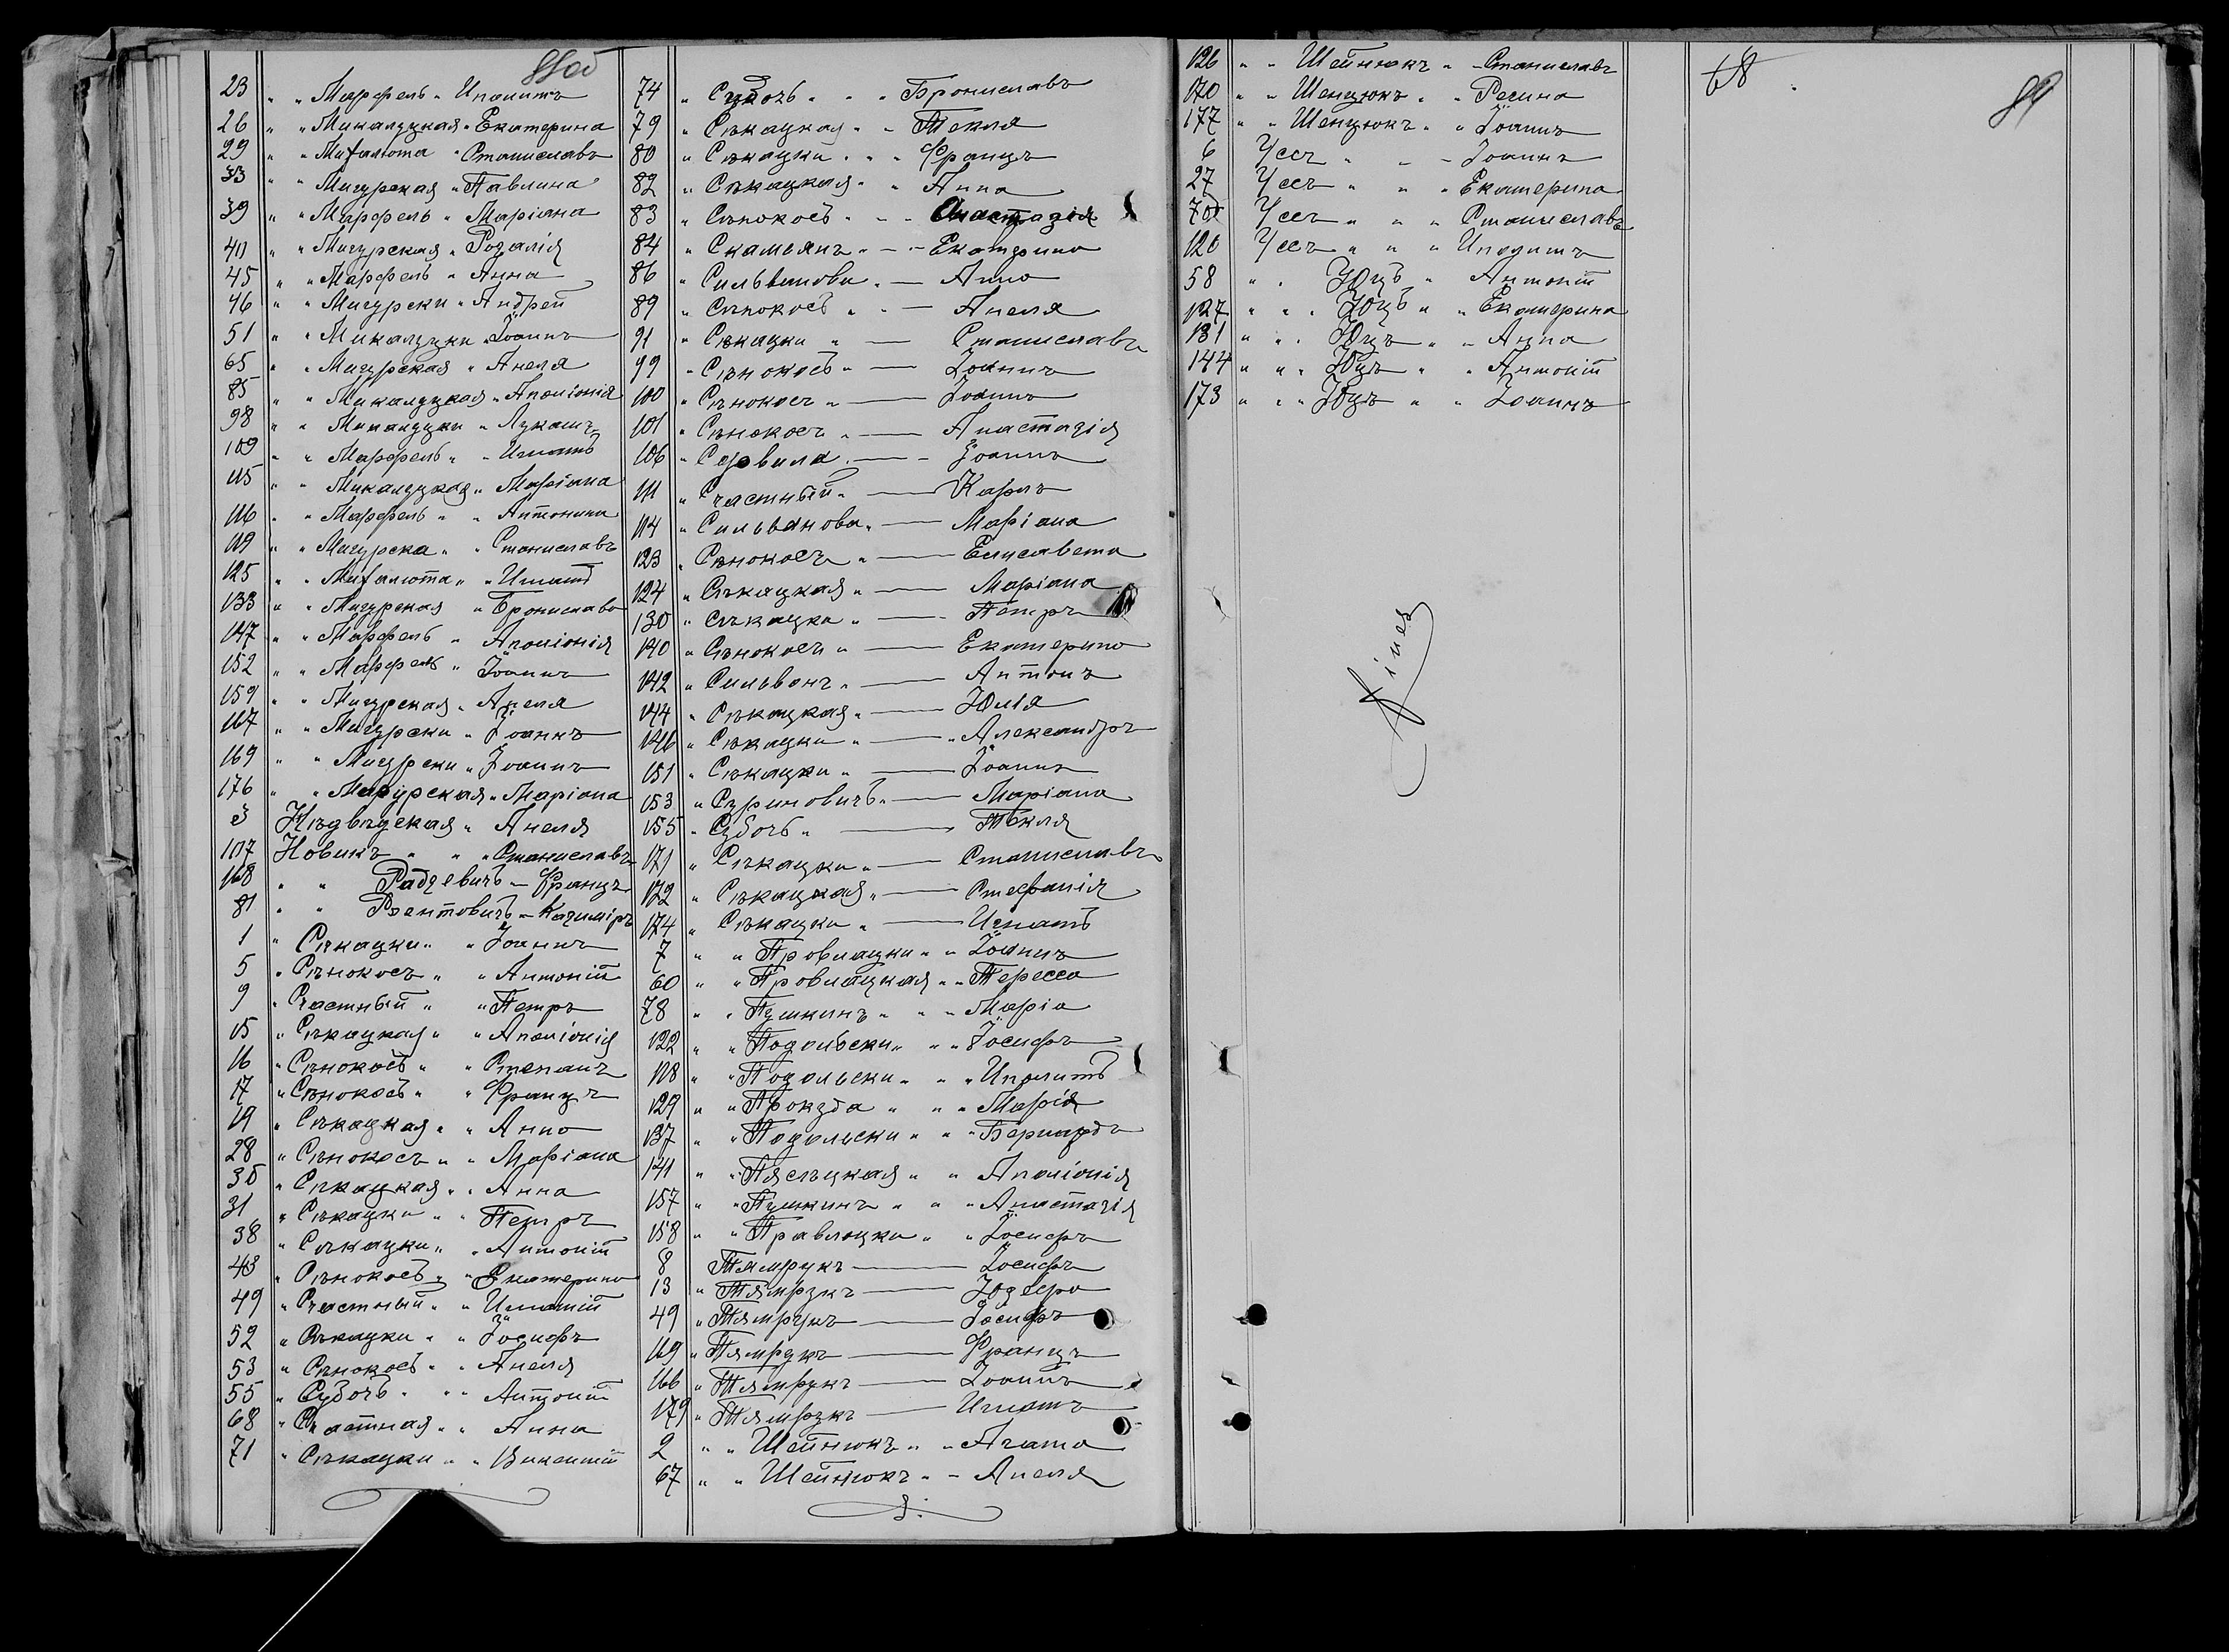 88об
23 " " Марфель " Иполитъ
26 " " Микалуцкая " Екатерина
29 " " Михалюта " Станиславъ
33 " " Мигурская " Павлина
39 " " Марфель " Маріана
40 " " Мигурская " Розалія
45 " " Марфель " Анна
46 " " Мигурски " Андрей
51 " " Микалуцки " Іоаннъ
65 " " Мигурская " Анеля
85 " " Микалуцкая " Аполіонія
98 " " Микалуцки " Лукашъ
109 " " Марфель " " Игнатъ
115 " " Микалуцкая " Маріана
116 " " Марфель " " Антонина
119 " " Мигурска " " Станиславъ
125 " " Михалюта " " Игнатъ
133 " " Мигурская " Бронислава
147 " " Марфель " Аполіонія
152 " " Марфель " Іоаннъ
159 " " Мигурская " Анеля
167 " " Мигурски " Іоаннъ
169 " " Мигурски " Іоаннъ
176 " " Мазурская " Маріана
3 Нѣдвѣдская " Анеля
107 Новикъ " " " Станиславъ
168 " " Радзевичъ - Францъ
81 " " Рентовичъ - Казиміръ
1 " Сѣкацки " " Іоаннъ
5 " Сѣнокосъ " " Антоній
9 " Счастный " " Петръ
15 " Сѣкацкая " " Аполіонія
16 " Сѣнокосъ " " Степанъ
17 " Сѣнокосъ " " Францъ
19 " Сѣкацкая " " Анна
28 " Сѣнокосъ " " Маріана
30 " Сѣкацкая " " Анна
31 " Сѣкацки " " Петръ
38 " Сѣкацки " " Антоній
43 " Сѣнокосъ " " Екатерина
49 " Счастный " " Игнатій
52 " Сѣкацки " " Іосифъ
53 " Сѣнокосъ " " Анеля
55 " Субочъ " " " Антоній
68 " Счастная " " Анна
71 " Сѣкацки " " Викентій
74 " Субочъ " " " Брониславъ
79 " Сѣкацкая " " Текля
80 " Сѣкацки " " " Францъ
82 " Сѣкацкая " " Анна
83 " Сѣнокосъ " - - Анастазія
84 " Скамьянъ " - - Екатерина
86 " Сильванова " — Анна
89 " Сѣнокосъ " " — Анеля
91 " Сѣкацки " — Станиславъ
99 " Сѣнокосъ " — Іоаннъ
100 " Сѣнокосъ " — Іоаннъ
101 " Сѣнокосъ " — Анастазія
106 " Судвила " — - Іоаннъ
111 " Счастный " — Карлъ
114 " Сильванова " — Маріана
123 " Сѣнокосъ " — Елисавета
124 " Сѣкацкая " — Маріана
130 " Сѣкацки " — Петръ
140 " Сѣнокосъ " — Екатерина
142 " Сильванъ " — Антонъ
144 " Сѣкацкая " — Юлія
146 " Сѣкацки " — " Александръ
151 " Сѣкацки " — Іоаннъ
153 " Суриновичъ " — Маріана
155 " Субочъ " — Текля
171 " Сѣкацки " — Станиславъ
172 " Сѣкацкая " — Стефанія
174 " Сѣкацки " — Игнатъ
7 " " Провлацки " " Іоаннъ
60 " " Провлацкая " " Тересса
78 " " Пушкинъ " " " Марія
122 " " Подольски " " " Іосифъ
128 " " Подольски " " " Иполитъ
129 " " Прокуда " " " Марія
137 " " Подольски " " " Бернардъ
141 " " Пясѣцкая " " Аполіонія
157 " " Пушкинъ " " " Анастазія
158 " " Правлоцки " " Іосифъ
8 Тямрукъ — Іосифъ
13 " Тямрукъ — Юзефа
49 " Тямрукъ — Іосифъ
169 " Тямрукъ — Францъ
166 " Тямрукъ — Іоаннъ
179 " Тямрукъ — Игнатъ
2 " " Шейнюкъ " " Агата
67 " " Шейнюкъ " - Анеля
126 " " Шейнюкъ " - Станиславъ
170 " " Шенцюкъ " " Регина
177 " " Шенцюкъ " " Іоаннъ
6 Усъ " - - Іоаннъ
27 Усъ " " " Екатерина
70 Усъ " " " Станиславъ
120 Усъ " " " Иполитъ
58 " " Юцъ " Антоній
127 " " " Юцъ " " Екатерина
131 " " " Юцъ " " Анна
144 " " " Юцъ " " Антоній
173 " " " Юцъ " " Іоаннъ
68
89